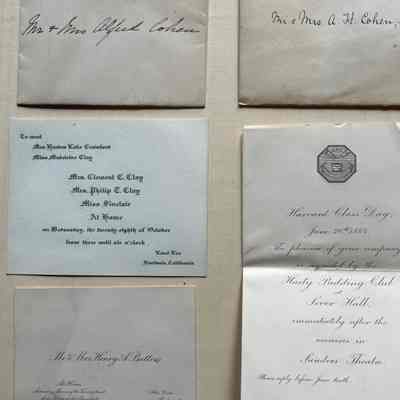 Mr & Mrs Alfred Cohen
Mr & Mrs A. H. Cohen,
To meet
Mrs
Miss Madeleine Clay
Mrs. Clement C. Clay
Mrs. Philip T. Clay
Miss Sinclair
At Home
on Wednesday, the twenty-eighth of October
from three until six o'clock
Fruitvale, California
Mr & Mrs Henry A. Butters
At Home
Harvard Class Day,
June
The pleasure of your company
is requested by the
Hasty Pudding Club
at
Sever Hall,
immediately after the
exercises in
Sanders Theatre
Please reply before June tenth.